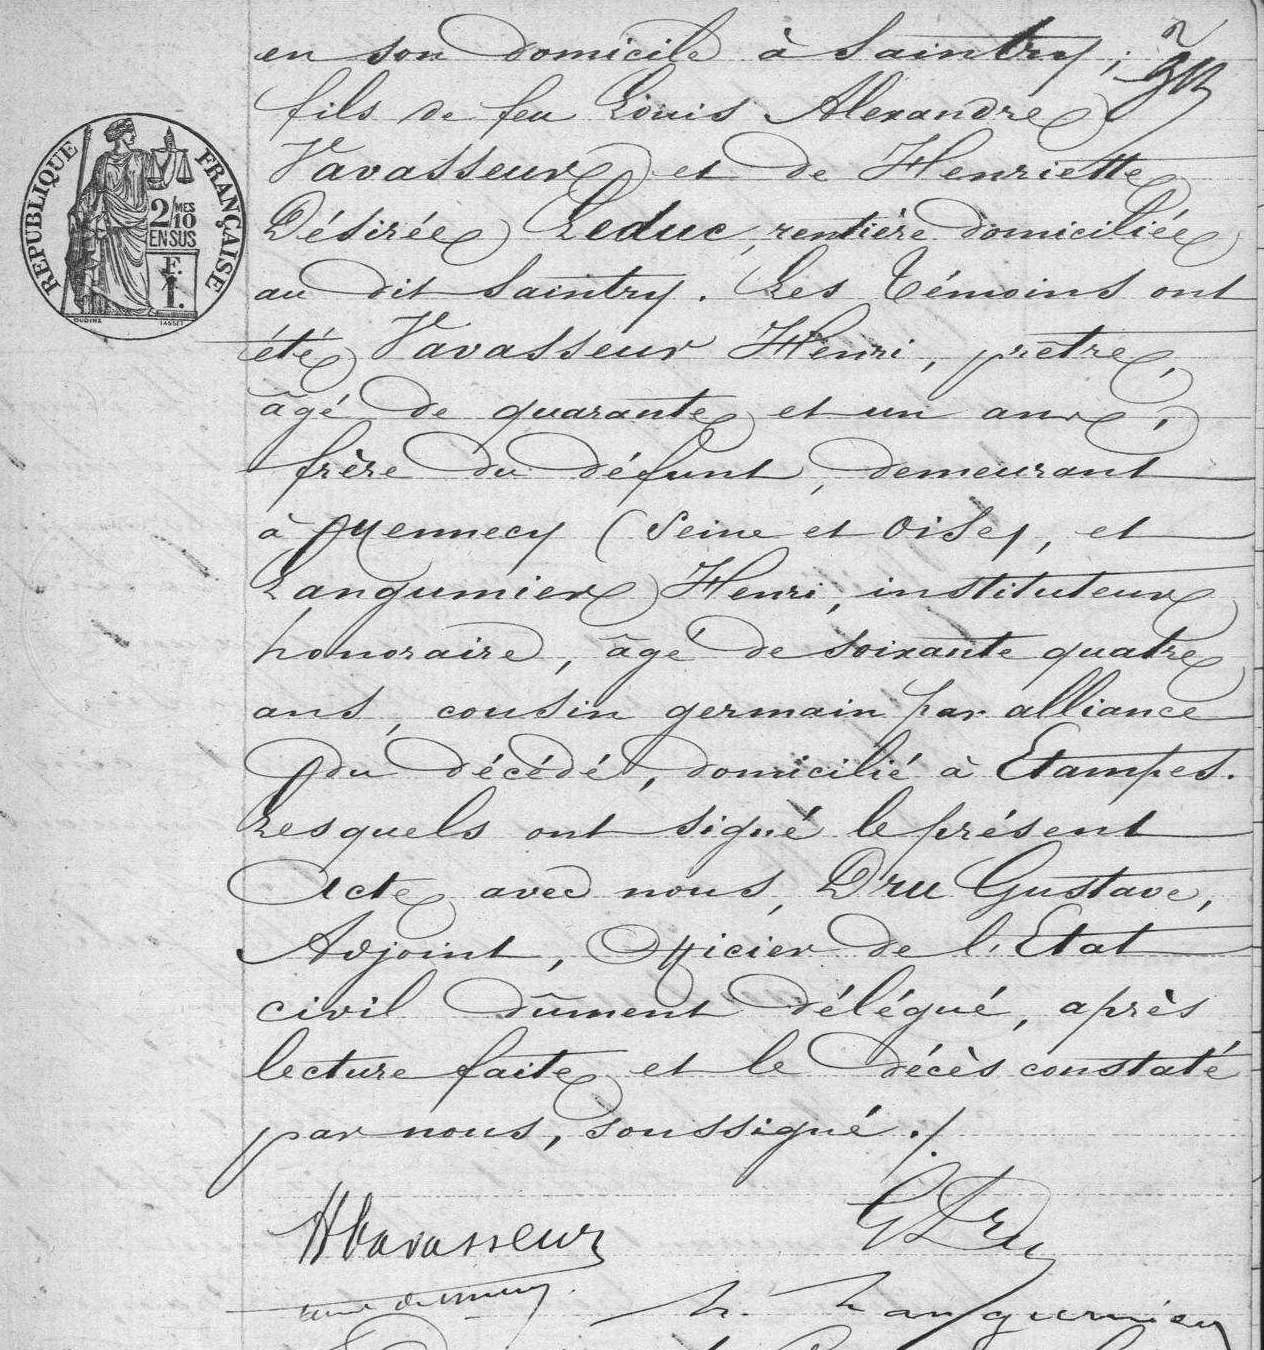 en son domicile à Saintry ;
fils de feu Louis Alexandre
Vavasseur et de Henriette
Désirée Leduc, rentière domiciliée
au dit Saintry. Les Témoins ont
été Vavasseur Henri, prêtre,
âgé de quarante et un ans,
frère du défunt, demeurant
à Mennecy (Seine et Oise), et
Langumier Henri, instituteur
honoraire, âgé de soixante quatre
ans, cousin germain par alliance
du décédé, domicilié à Etampes.
Lesquels ont signé le présent
Acte avec nous, Dru Gustave,
Adjoint, Officier de l'Etat
civil dûment délégué, après
lecture faite et le décès constaté
par nous, soussigné ./.
RÉPUBLIQUE FRANÇAISE
2/10 MES
EN SUS
F.
1.
OUDINÉ
TASSET
H Vavasseur
G Dru
h. Langumier